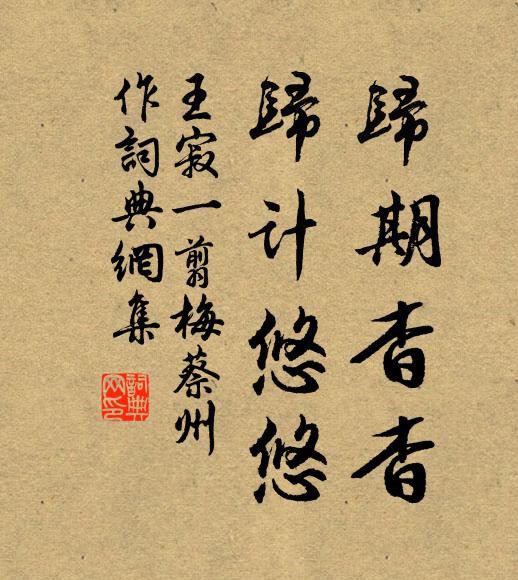 歸期杳杳
歸計悠悠
王寂一翦梅蔡州
作詞典網集
詞典
网印